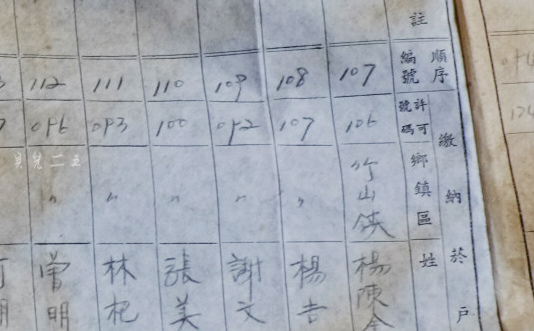 註
順序編號
許可號碼
繳納菸戶
鄉鎮區
姓
107 106 竹山 楊陳金
108 107 〃 楊吉
109 092 〃 謝文
110 100 〃 張美
111 093 〃 林杞
112 096 〃 曾明